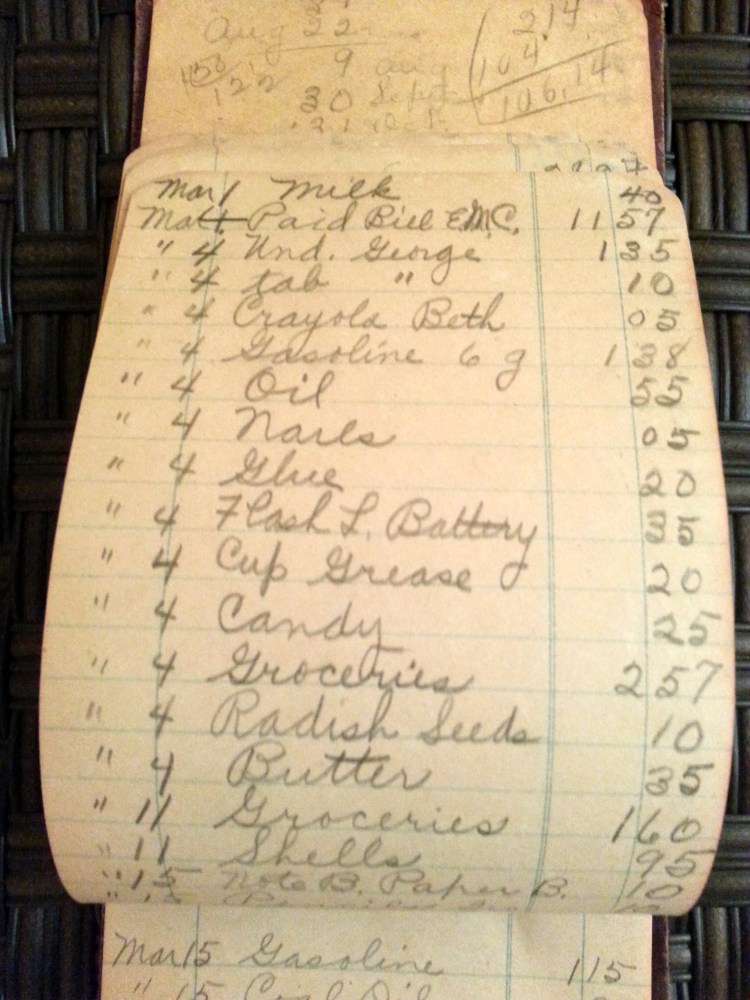 Aug 22
9 aug
158
122
30 Sept
21 Oct.
2,14
104
106.14
Mar 1 Milk 40
Mar 4 Paid Bill E.M.C. 11 57
" 4 Und. George 1 35
" 4 tab " 10
" 4 Crayola Beth 05
" 4 Gasoline 6 g 1 38
" 4 Oil 55
" 4 Nails 05
" 4 Glue 20
" 4 Flash L. Battery 35
" 4 Cup Grease 20
" 4 Candy 25
" 4 Groceries 2 57
" 4 Radish Seeds 10
" 4 Butter 35
" 11 Groceries 1 60
" 11 Shells 95
" 15 Note B. Paper B. 10
Mar 15 Gasoline 1 15
" 15 Coal Oil